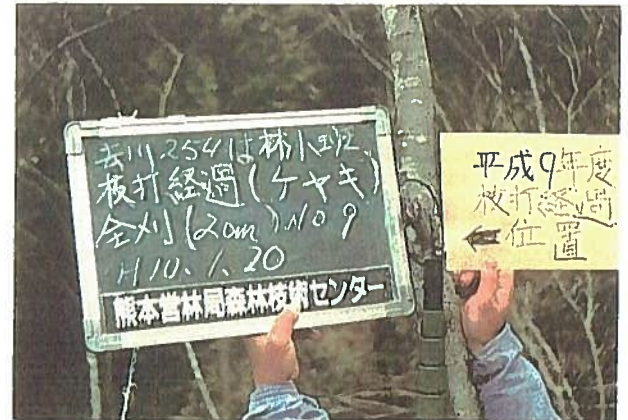 去川254は林小班
枝打経過(ケヤキ)
全刈(20m)NO9
H10.1.20
熊本営林局森林技術センター
平成9年度
枝打経過
←位置